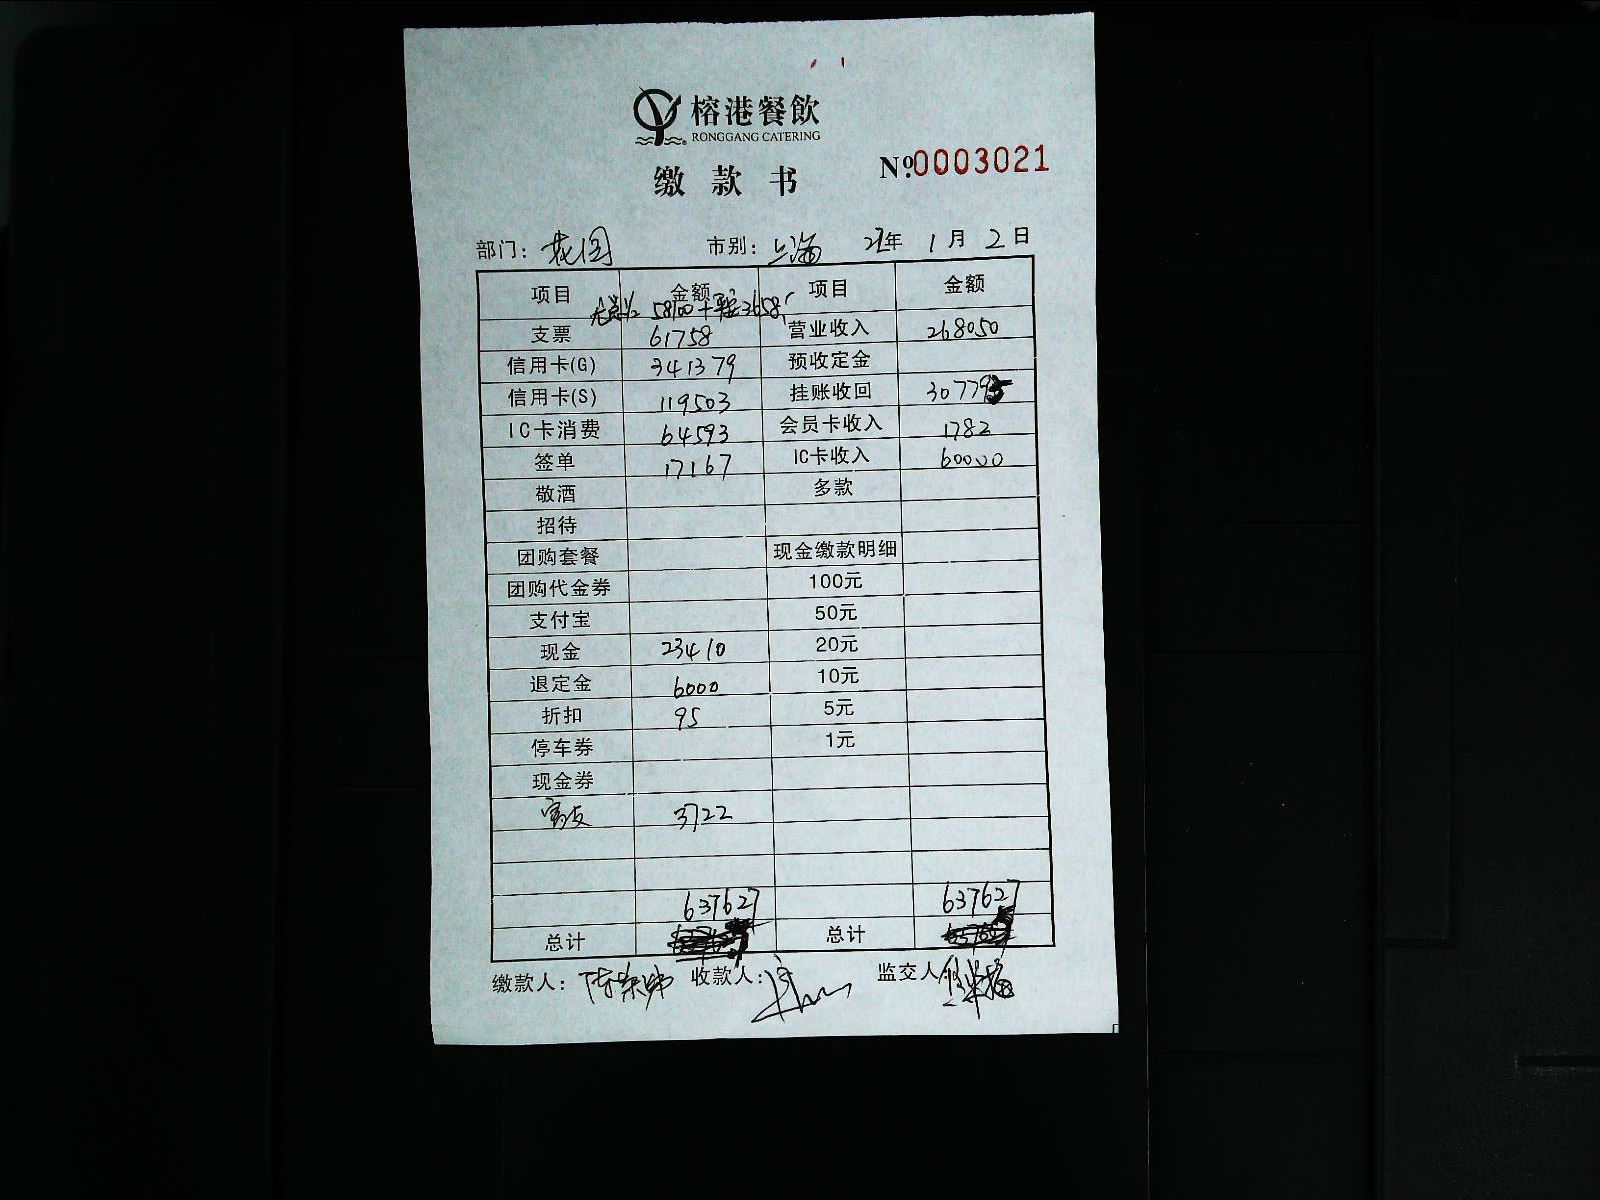 榕港餐飲
RONGGANG CATERING
缴款书
№0003021
部门: 花园 市别: 上海 21年 1月 2日
项目 金额 项目 金额
58100+ 3658
支票 61758 营业收入 268050
信用卡(G) 341379 预收定金
信用卡(S) 119503 挂账收回 307795
IC卡消费 64593 会员卡收入 1782
签单 17167 IC卡收入 60000
敬酒 多款
招待
团购套餐 现金缴款明细
团购代金券 100元
支付宝 50元
现金 23410 20元
退定金 6000 10元
折扣 95 5元
停车券 1元
现金券
3722
637627 637627
总计 总计
缴款人: 收款人: 监交人: